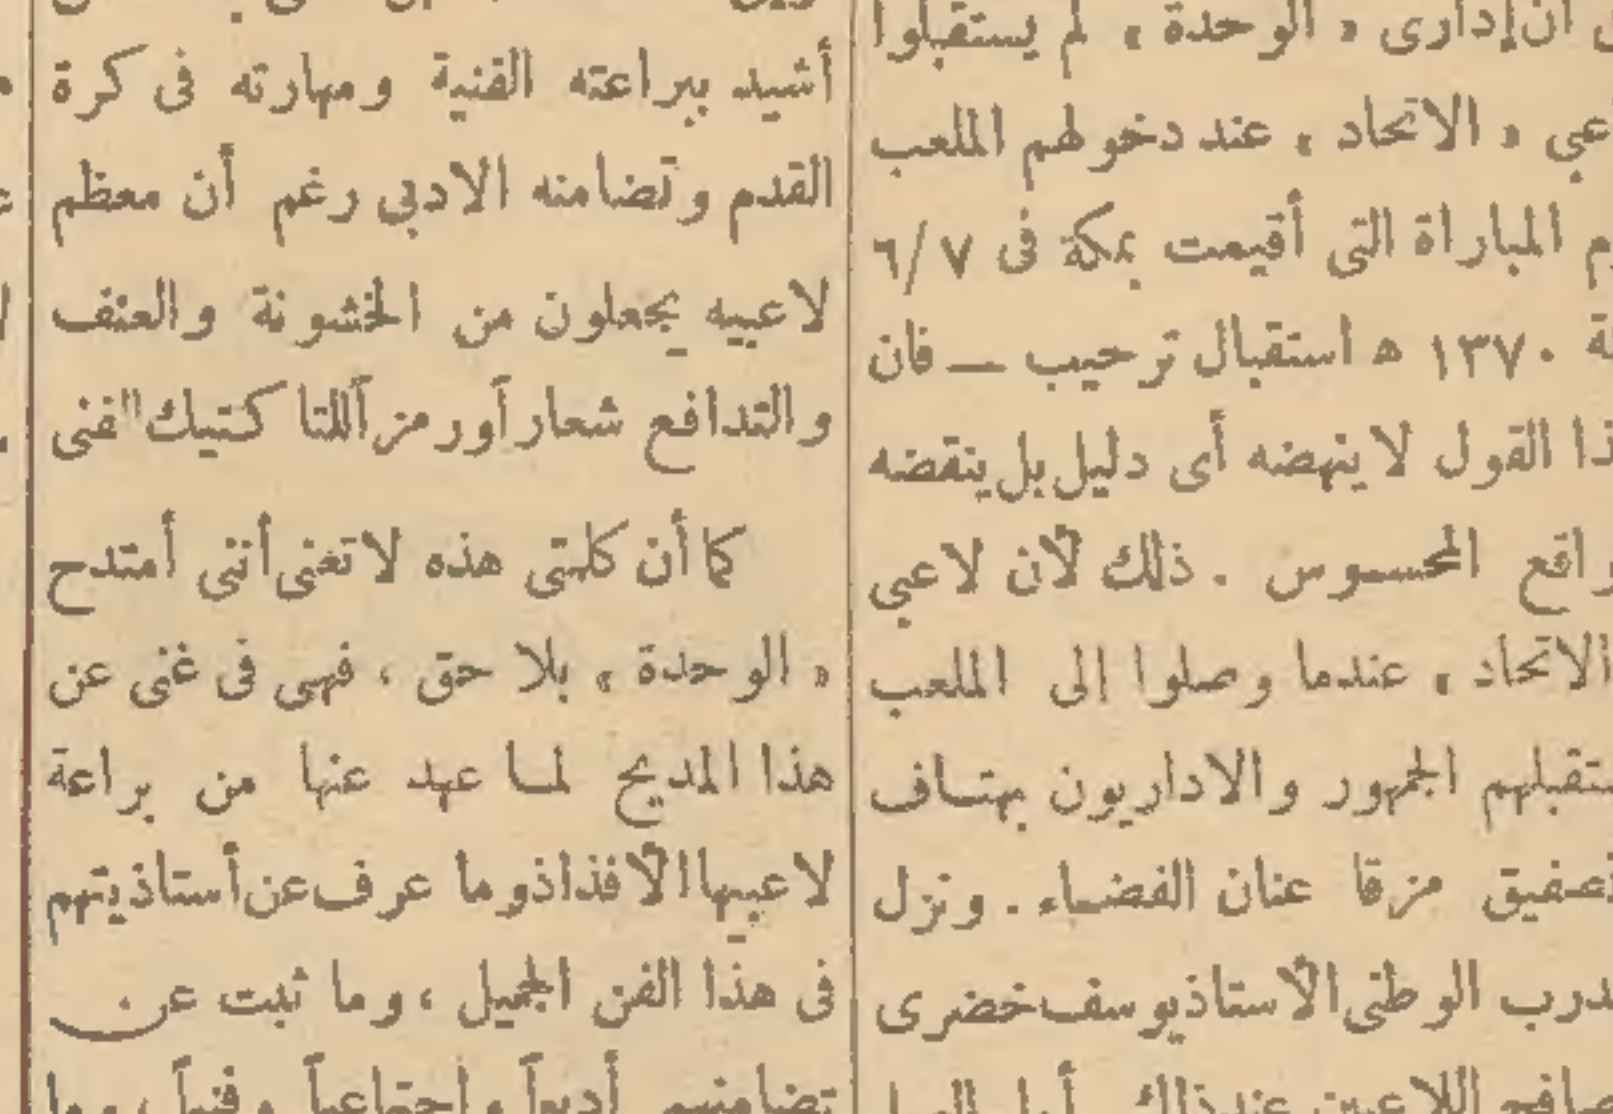 أن إدارى « الوحدة » لم يستقبلوا
« الاتحاد » عند دخولهم الملعب
المباراة التى أقيمت بمكة فى ٦/٧
١٣٧٠ ه استقبال ترحيب — فان
القول لا ينهضه أى دليل بل ينقضه
المحسوس . ذلك لأن لاعبي
الاتحاد » عندما وصلوا الى الملعب
الجمهور والاداريون بهتاف
مزقا عنان الفضاء . ونزل
الوطنى الأستاذ يوسف خضرى
أشيد ببراعته الفنية ومهارته فى كرة
القدم وتضامنه الادبي رغم أن معظم
لاعبيه يجعلون من الخشونة والعنف
والتدافع شعاراً ورمزاً للتاكتيك الفنى
كما أن كلمتى هذه لا تعنى أننى أمتدح
« الوحدة » بلا حق ، فهى فى غنى عن
هذا المديح لما عهد عنها من براعة
لاعبيها الأفذاذ وما عرف عن أستاذيتهم
فى هذا الفن الجميل ، وما ثبت عن
تضامنهم أدبياً واجتماعياً وفنياً ، وما